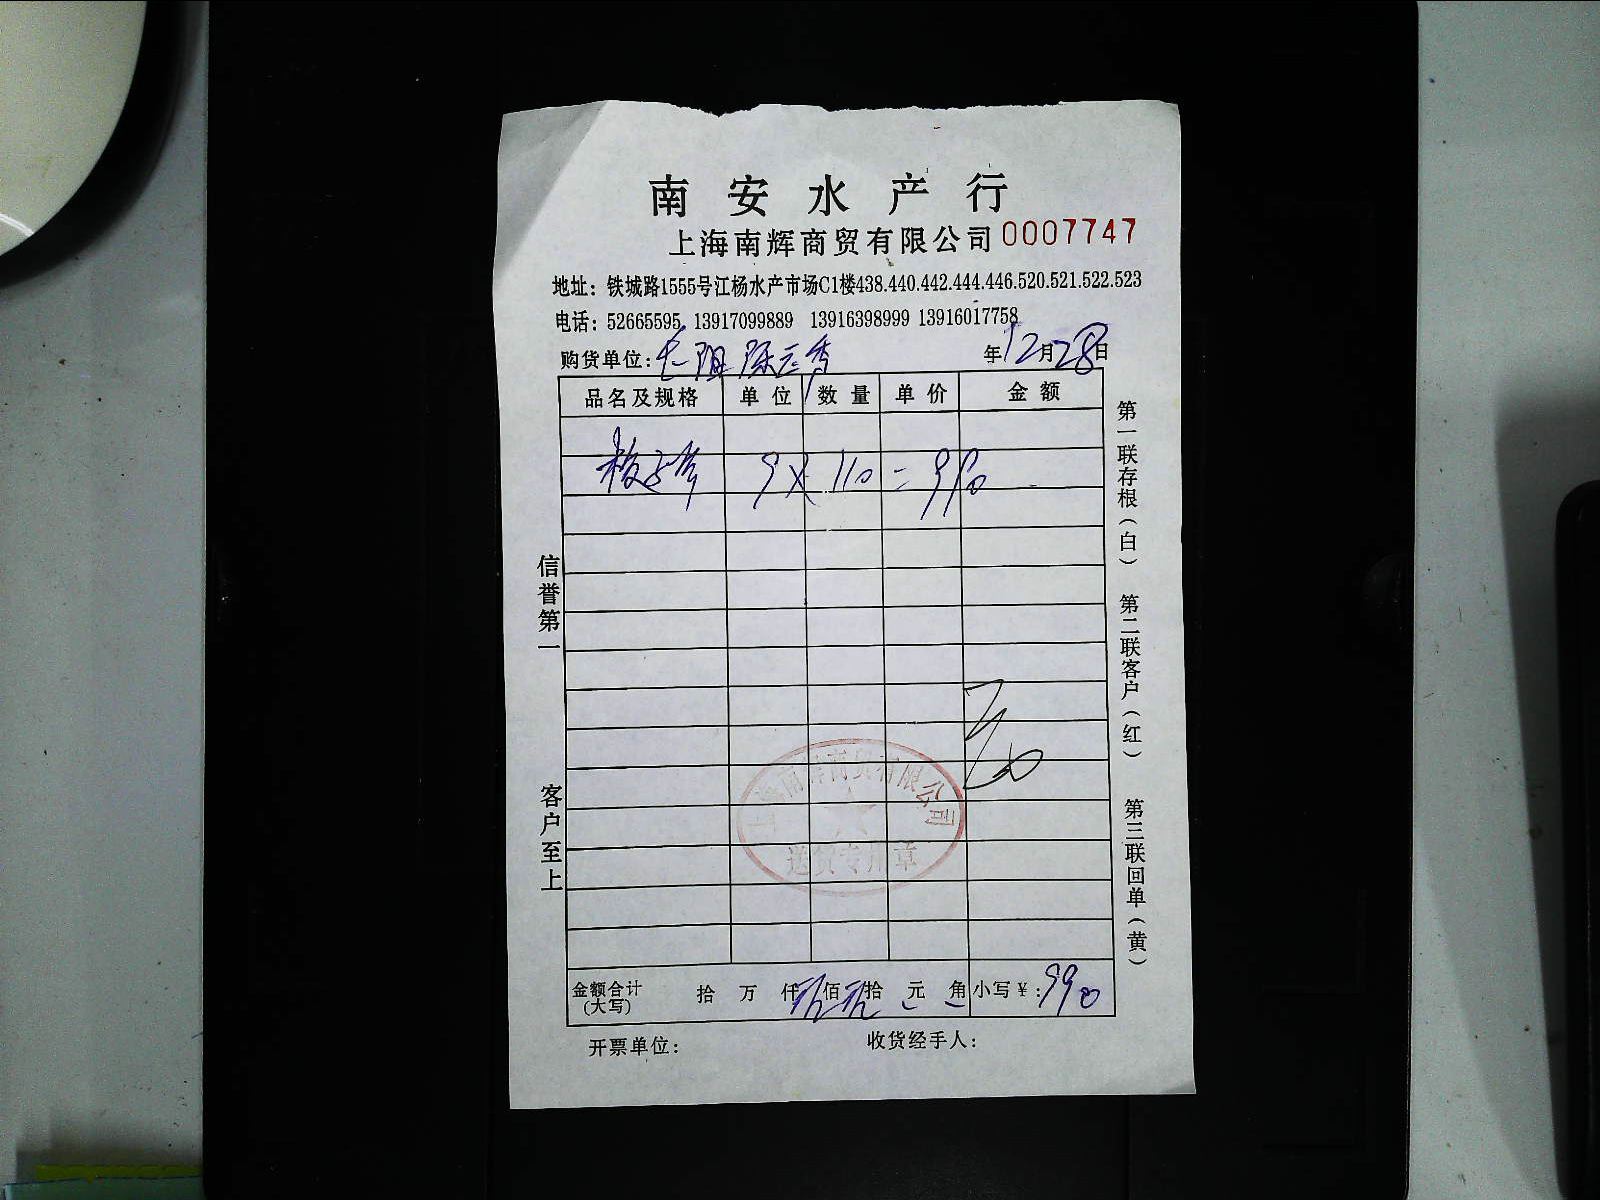 南安水产行
上海南辉商贸有限公司 0007747
地址：铁城路1555号江杨水产市场C1楼438.440.442.444.446.520.521.522.523
电话：52665595 13917099889 13916398999 13916017758
购货单位： 年12月28日
品名及规格 单位 数量 单价 金额
9 X 110 = 990
信誉第一
客户至上
第一联存根（白） 第二联客户（红） 第三联回单（黄）
上海南辉商贸有限公司
送货专用章
金额合计（大写） 拾 万 仟 玖佰玖拾 元 角 小写￥：990
开票单位： 收货经手人：